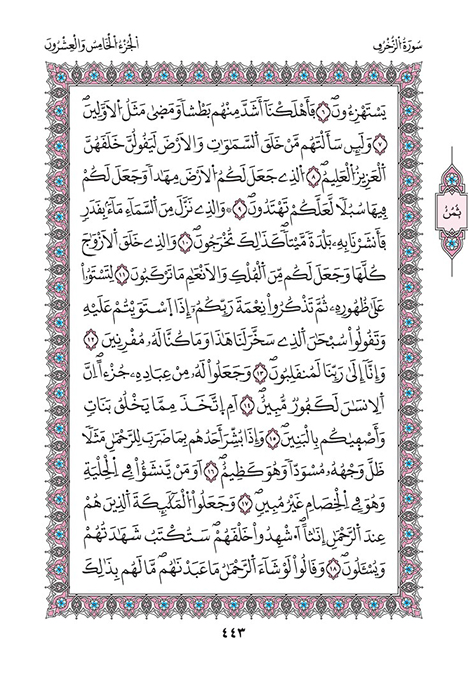 سُورَةُ الزُّخْرُفِ
الْجُزْءُ الْخَامِسُ وَالْعِشْرُونَ
يَسْتَهْزِءُونَۖ ٦ فَأَهْلَكْنَآ أَشَدَّ مِنْهُم بَطْشاً وَمَضىٰ مَثَلُ اُ۬لَاوَّلِينَۖ
٧ وَلَئِن سَأَلْتَهُم مَّنْ خَلَقَ اَ۬لسَّمَٰوَٰتِ وَالَارْضَ لَيَقُولُنَّ خَلَقَهُنَّ
اَ۬لْعَزِيزُ اُ۬لْعَلِيمُۖ ٨ اُ۬لذِے جَعَلَ لَكُمُ اُ۬لَارْضَ مِهَٰداً وَجَعَلَ لَكُمْ
فِيهَا سُبُلاً لَّعَلَّكُمْ تَهْتَدُونَۖ ٩ وَالذِے نَزَّلَ مِنَ اَ۬لسَّمَآءِ مَآءَۢ بِقَدَرٖ
فَأَنشَرْنَا بِهِۦ بَلْدَةً مَّيْتاًۖ كَذَٰلِكَ تُخْرَجُونَۖ ١٠ وَالذِے خَلَقَ اَ۬لَازْوَٰجَ
كُلَّهَا وَجَعَلَ لَكُم مِّنَ اَ۬لْفُلْكِ وَالَانْعَٰمِ مَا تَرْكَبُونَ ١١ لِتَسْتَوُۥاْ
عَلَىٰ ظُهُورِهِۦ ثُمَّ تَذْكُرُواْ نِعْمَةَ رَبِّكُمُۥٓ إِذَا اَ۪سْتَوَيْتُمْ عَلَيْهِ
وَتَقُولُواْ سُبْحَٰنَ اَ۬لذِے سَخَّرَ لَنَا هَٰذَا وَمَا كُنَّا لَهُۥ مُقْرِنِينَ ١٢
وَإِنَّآ إِلَىٰ رَبِّنَا لَمُنقَلِبُونَۖ ١٣ وَجَعَلُواْ لَهُۥ مِنْ عِبَادِهِۦ جُزْءاًۖ اِنَّ
اَ۬لِانسَٰنَ لَكَفُورٞ مُّبِينٌۖ ١٤ اَمِ اِ۪تَّخَذَ مِمَّا يَخْلُقُ بَنَاتٖ
وَأَصْفَيٰكُم بِالْبَنِينَۖ ١٥ وَإِذَا بُشِّرَ أَحَدُهُم بِمَا ضَرَبَ لِلرَّحْمَٰنِ مَثَلاً
ظَلَّ وَجْهُهُۥ مُسْوَدّاً وَهُوَ كَظِيمٌۖ ١٦ اَوَمَنْ يَّنشَؤُاْ فِے اِ۬لْحِلْيَةِ
وَهُوَ فِے اِ۬لْخِصَامِ غَيْرُ مُبِينٖۖ ١٧ وَجَعَلُواْ اُ۬لْمَلَٰٓئِكَةَ اَ۬لذِينَ هُمْ
عِندَ اَ۬لرَّحْمَٰنِ إِنَٰثاًۖ اَ۟شْهِدُواْ خَلْقَهُمْۖ سَتُكْتَبُ شَهَٰدَتُهُمْ
وَيُسْـَٔلُونَۖ ١٨ وَقَالُواْ لَوْ شَآءَ اَ۬لرَّحْمَٰنُ مَا عَبَدْنَٰهُمۖ مَّا لَهُم بِذَٰلِكَ
ثُمُنْ
٤٤٣